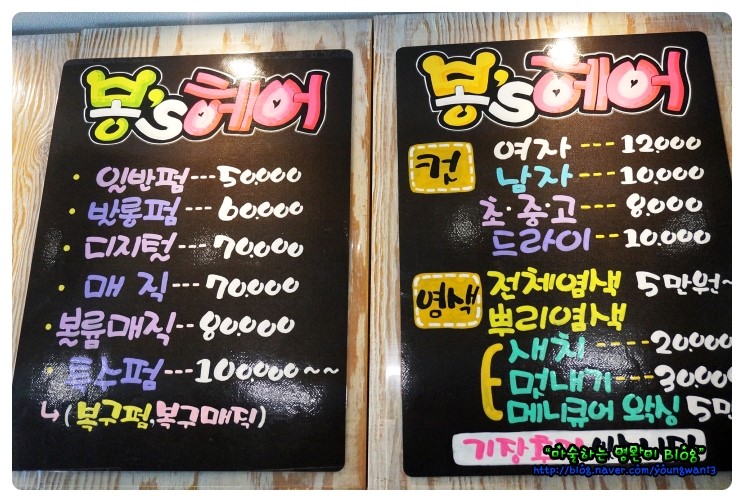 봉's헤어
· 일반펌---50.000
· 밧롱펌---60.000
· 디지털---70.000
· 매직---70.000
· 볼륨매직--80.000
· 특수펌---100.000~~
↳(복구펌,복구매직)
봉's헤어
컷
여자---12.000
남자---10.000
초·중고---8.000
드라이--10.000
염색
전체염색 5만원~
뿌리염색
새치---20.000
멋내기---30.000
메니큐어 왁싱 5만
기장추가
"마술하는 명완미 Blog"
http://blog.naver.com/youngwan13